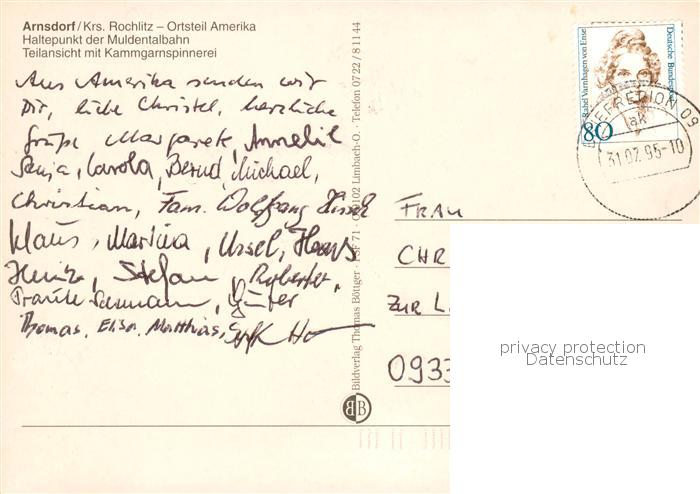 Arnsdorf/Krs. Rochlitz – Ortsteil Amerika
Haltepunkt der Muldentalbahn
Teilansicht mit Kammgarnspinnerei
Aus Amerika senden wir
Dir, liebe Christel, herzliche
Grüße Margarete, Annelie
Sonja, Carola, Bernd, Michael,
Christian, Fam. Wolfgang Hirsch
Klaus, Martina, Ursel, Hans
Heinz, Stefan,
Günter
Thomas, Elisa, Matthias,
Bildverlag Thomas Böttger · PSF 71 · O-9102 Limbach-O. · Telefon 0722/81144
BB
Rahel Varnhagen von Ense
Deutsche Bundespost
80
BRIEFREGION 09
ak
31.07.95-10
FRAU
CHR
ZUR L.
0933
privacy protection
Datenschutz